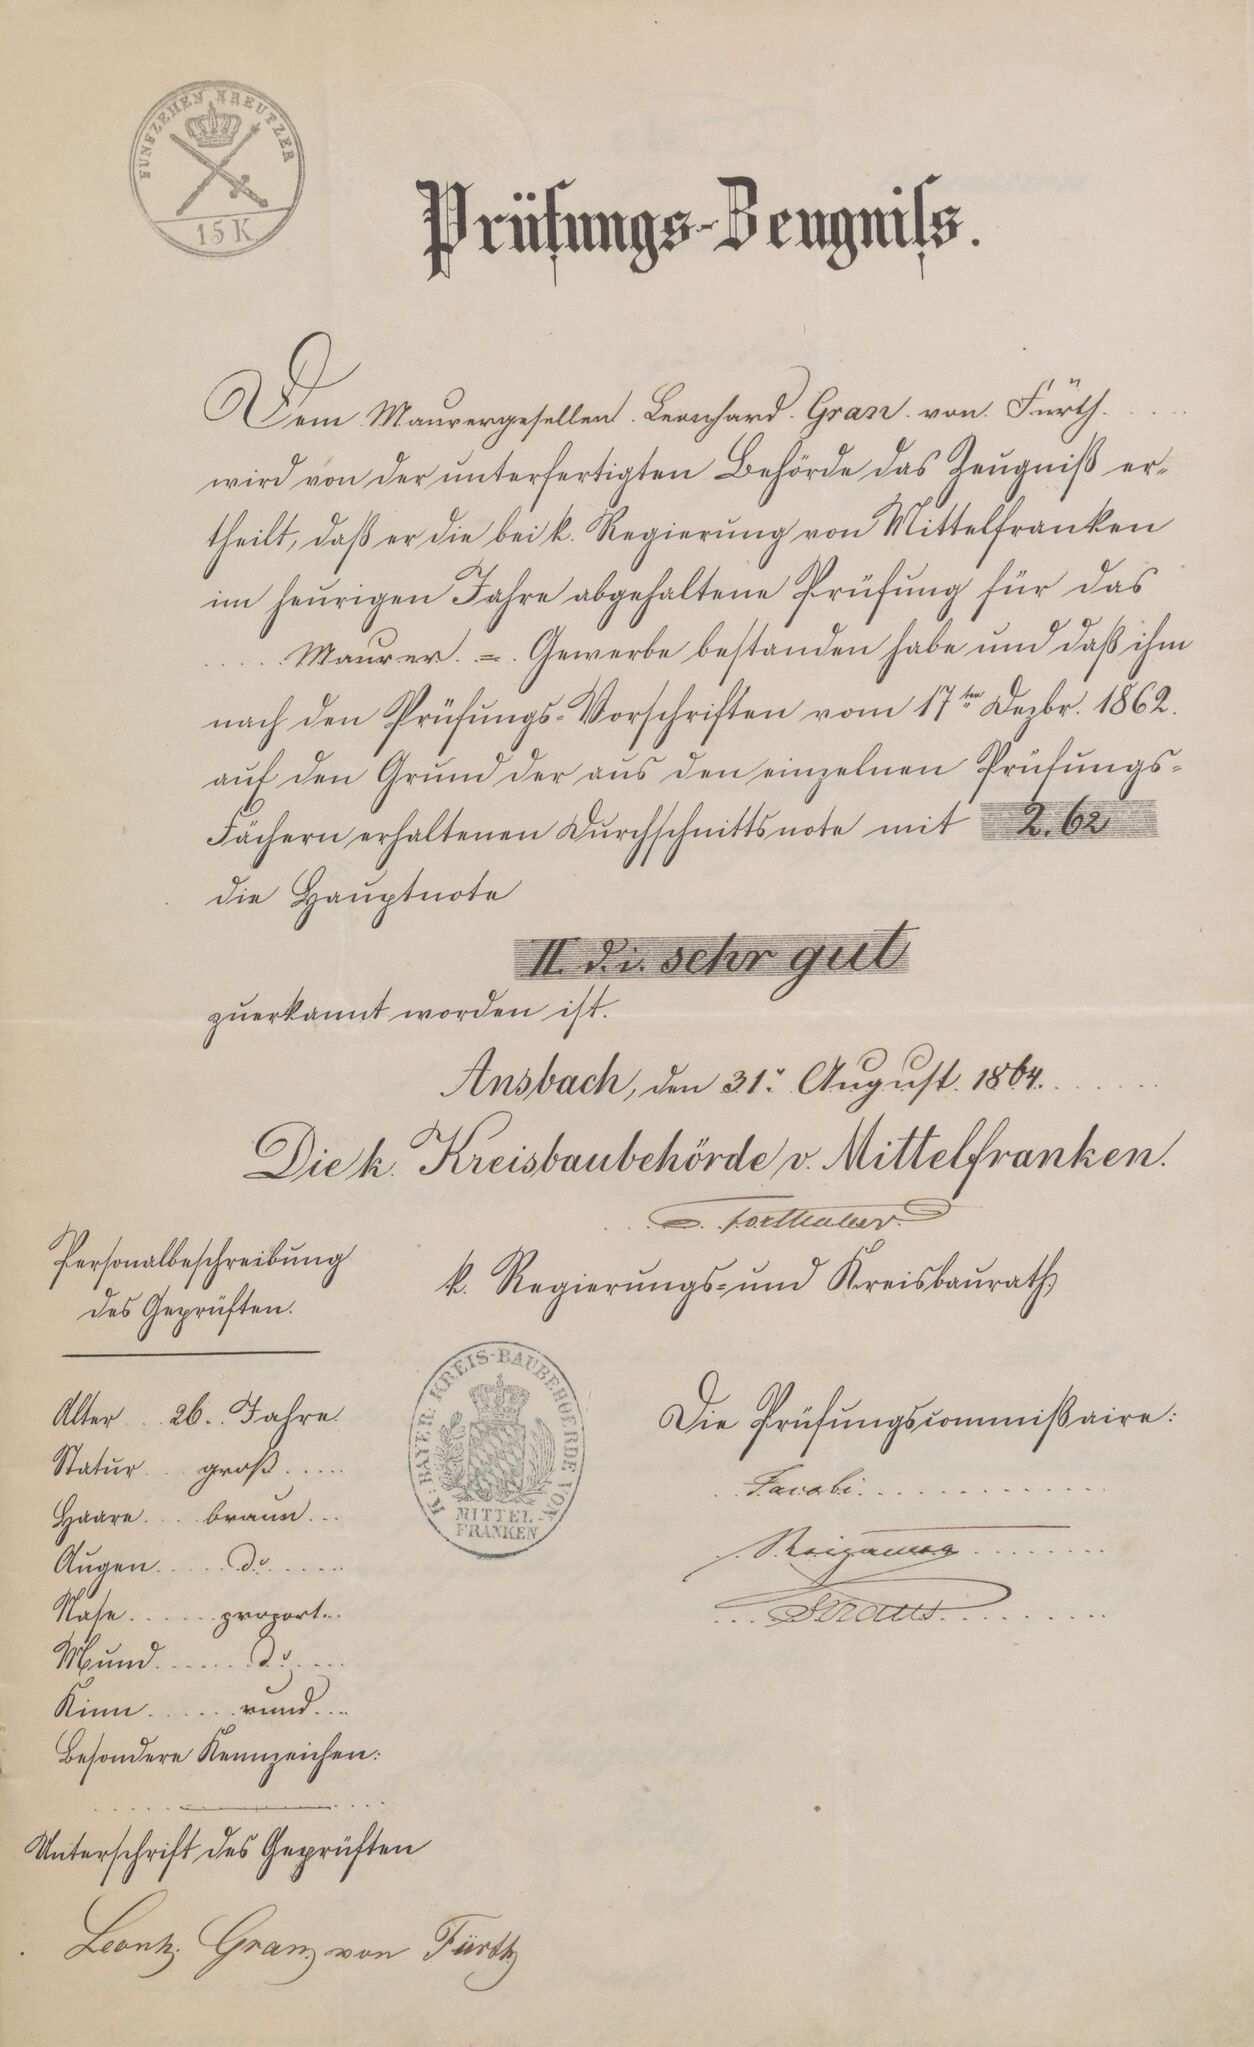 FÜNFZEHEN KREUTZER
15 K
Prüfungs-Zeugniss.
Dem Maurergesellen Leonhard Gran von Fürth
wird von der unterfertigten Behörde das Zeugniß er-
theilt, daß er die bei k. Regierung von Mittelfranken
im heurigen Jahre abgehaltene Prüfung für das
Maurer = Gewerbe bestanden habe und daß ihm
nach den Prüfungs-Vorschriften vom 17ten Dezbr. 1862.
auf den Grund der aus den einzelnen Prüfungs-
Fächern erhaltenen Durchschnittsnote mit 2.62
die Hauptnote
II. d. i. sehr gut
zuerkannt worden ist.
Ansbach, den 31. August 1864.
Die k. Kreisbaubehörde v. Mittelfranken.
k. Regierungs- und Kreisbaurath
Personalbeschreibung
des Geprüften.
Alter 26 Jahre
Statur groß
Haare braun
Augen do
Nase proport.
Mund do
Kinn rund
Besondere Kennzeichen:
K. BAYER. KREIS-BAUBEHOERDE VON
MITTEL-
FRANKEN
Die Prüfungscommißaire:
Jacobi
Straus
Unterschrift des Geprüften
Leonh. Gran von Fürth